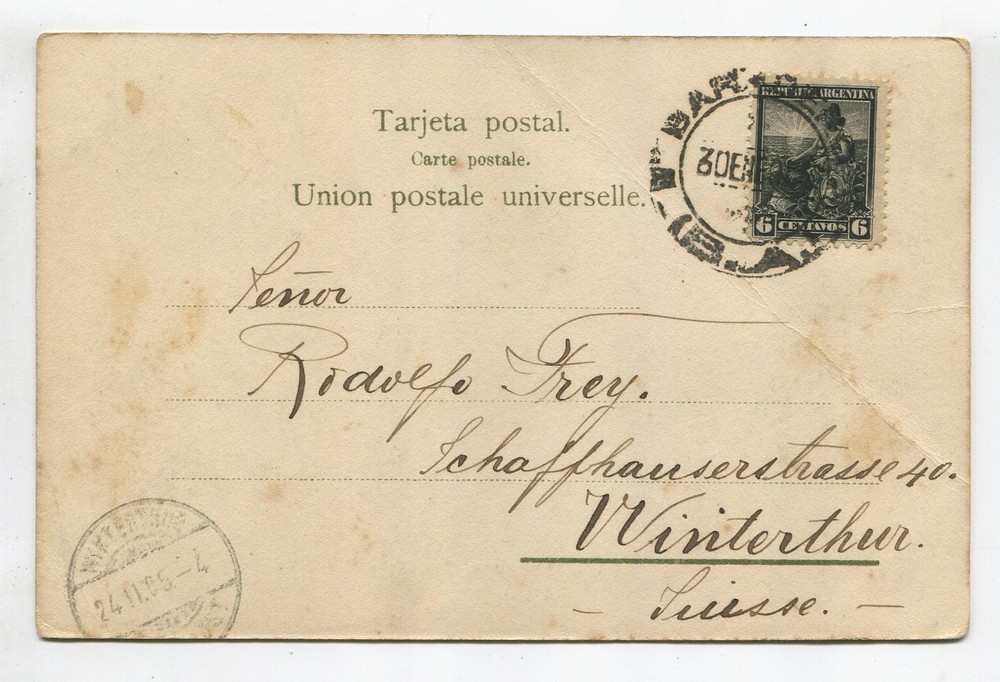 Tarjeta postal.
Carte postale.
Union postale universelle.
REPUBLICA ARGENTINA
6 CENTAVOS 6
30 EN
Señor
Rodolfo Frey.
Schaffhauserstrasse 40.
Winterthur.
- Suisse. -
WINTERTHUR
24.II.05.-4